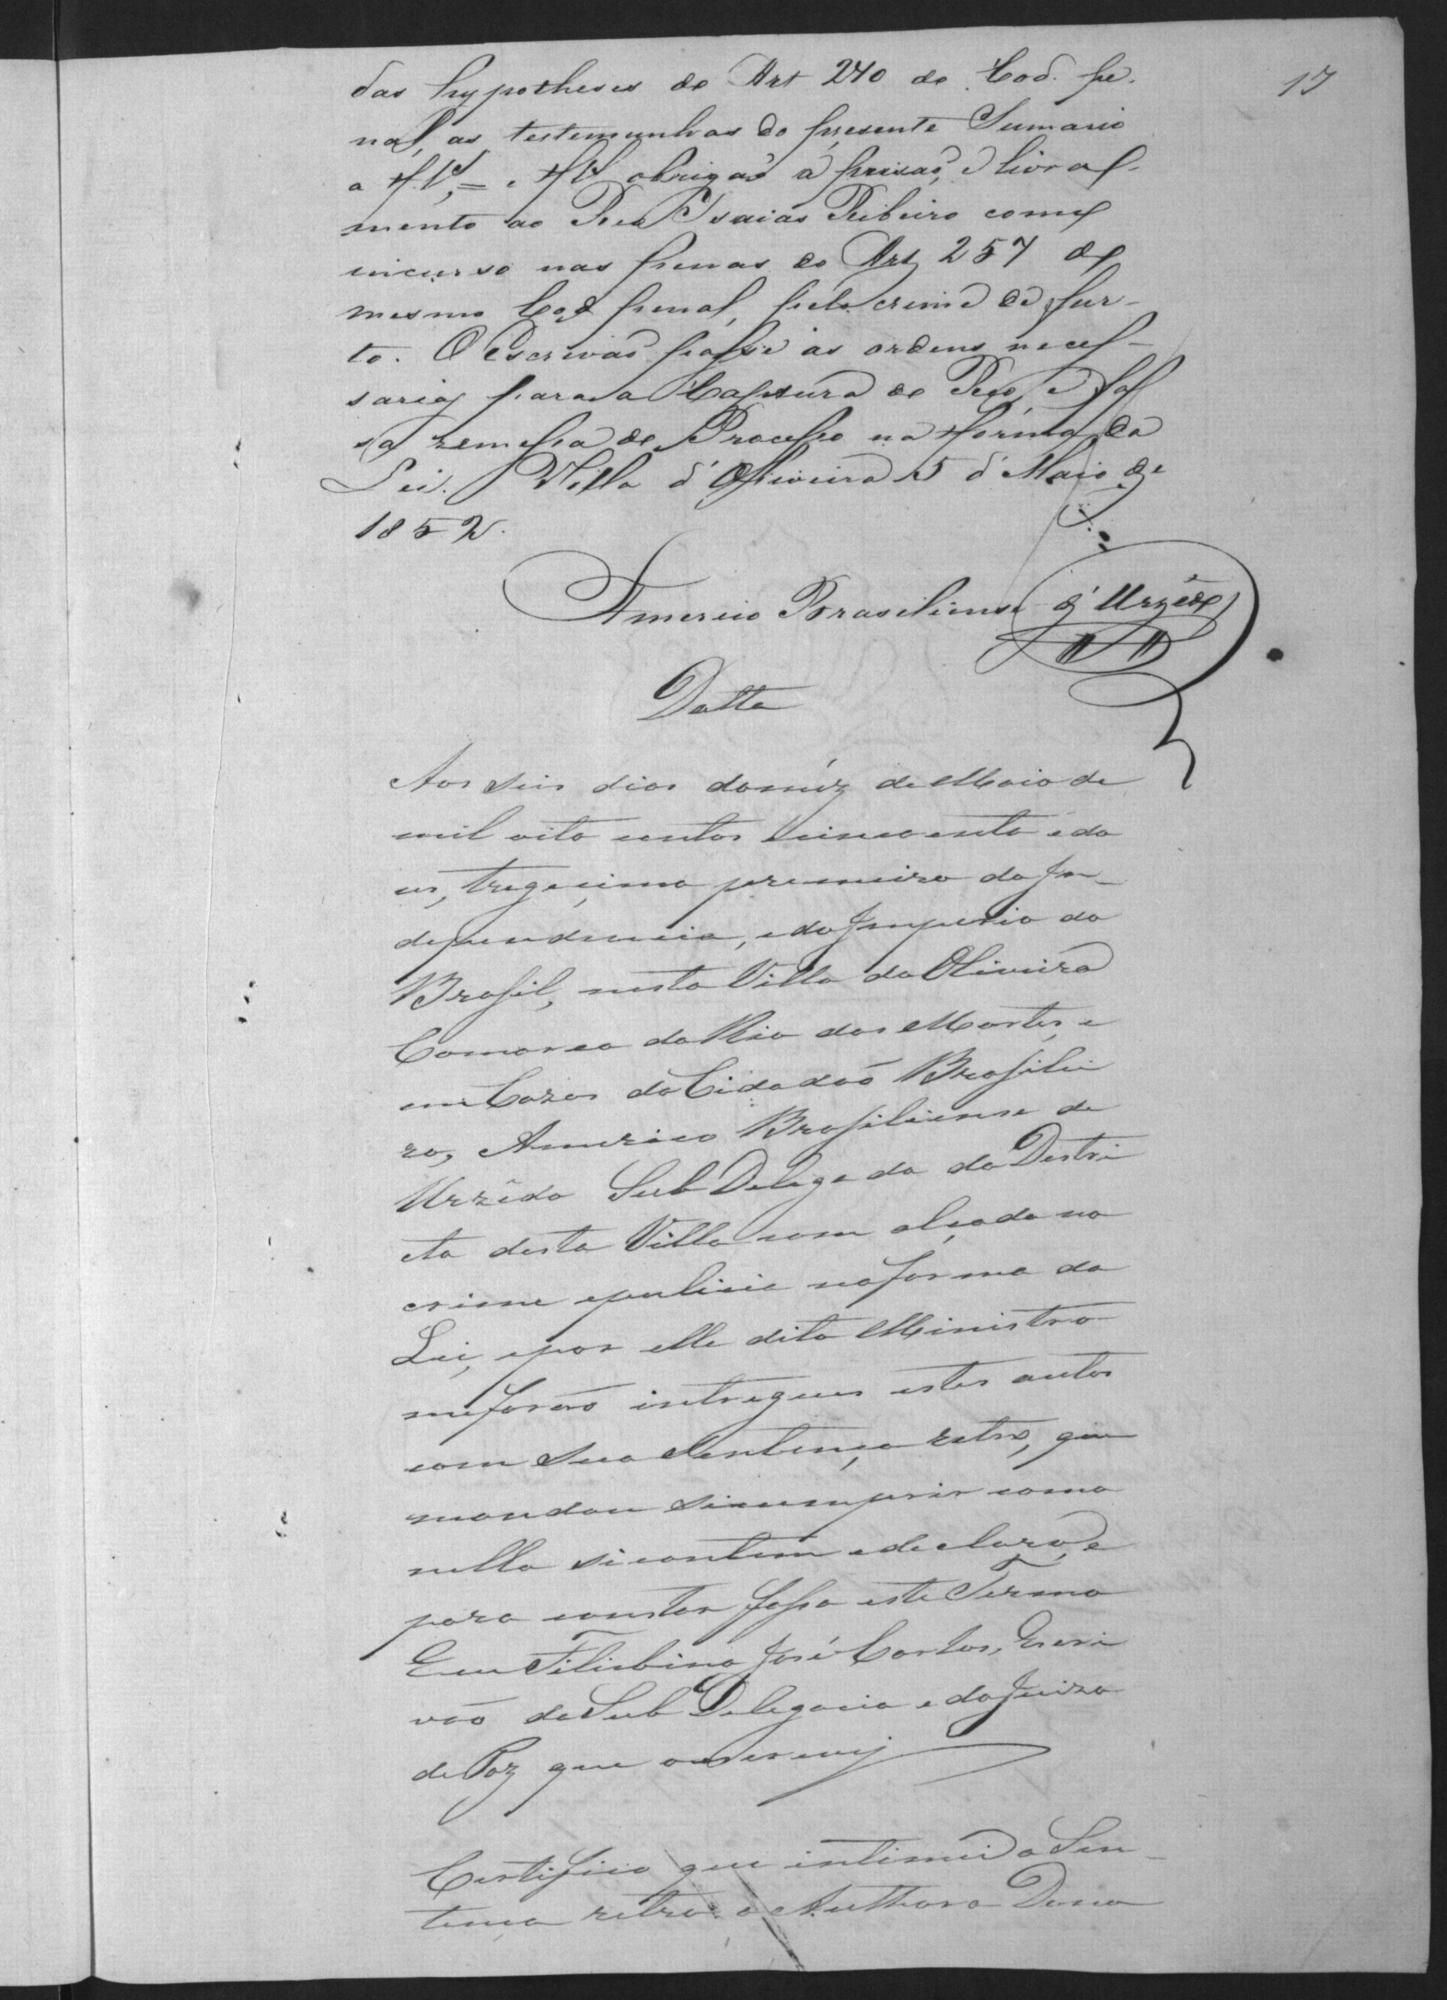 17
das hypotheses do Art 240 do Cod. pe-
nal, as testemunhas do presente Sumario
a f. = e f. obrigaõ á prisaõ, e livra-
mento ao Reo Isaias Ribeiro como
incurso nas penas do Art 257 do
mesmo Cod penal, pelo crime de fur-
to. O Escrivaõ passe as ordens neces-
sarias para a Captura do Reo, e fa-
sa remessa do Processo na fórma da
Lei. Villa d'Oliveira 5 d'Maio de
1852.
Americo Brasiliense d'Urzêdo
Datta
Aos seis dias do mêz de Maio de
mil oito centos e cincoenta e do
us, tregecimo premeiro da In-
dependencia, e do Imperio do
Brasil, nesta Villa da Oliveira
Comarca do Rio das Mortes, e
em Cazas do Cidadaõ Brasilei
ro, Americo Brasiliense de
Urzêdo Sub Delegado do Destri
cto desta Villa com alçada no
crime e pulicia na forma da
Lei, e por elle dito Ministro
me foraõ intregues estes autos
com sua Sentença retro, que
mandou si cumprir como
nella si contem e declara, e
para constar fasso este Termo
Eu Filisbino José Carlos, Escri
vaõ da Sub Delegacia e do Juizo
de Paz que o escrevij
Certifico que intimei a Sen-
tença retro a Authora Dona